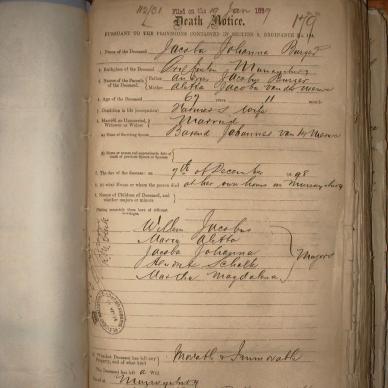 Filed on the 19 Jan 1899
Death Notice.
PURSUANT TO THE PROVISIONS CONTAINED IN SECTION 9, ORDINANCE No. 104.
1. Name of the Deceased Jacoba Johanna Burger
2. Birthplace of the Deceased Murraysburg
3. Names of the Parents of the Deceased
Father Jacobus Burger
Mother Aletta Jacoba van der Merwe
4. Age of the Deceased 67 years 11
5. Condition in life (occupation) Farmer's wife
6. Married or Unmarried, Widower or Widow Married
(a) Name of Surviving Spouse Barend Johannes van der Merwe
(b) Name or names and approximate date of death of previous Spouse or Spouses
7. The day of the decease on 7th of December 98
8. At what House or where the person died at her own home in Murraysburg
9. Names of Children of Deceased, and whether majors or minors
Willem Jacobus
Aletta
Jacoba Johanna
Schalk
Martha Magdalena
Majors
Whether Deceased has left any Property, and of what kind Movable & Immovable
The Deceased has left a Will
Murraysburg